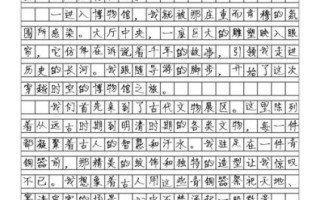 一进入博物馆，我就被那庄重而肃穆的氛
围所感染。大厅中央，一座巨大的雕塑映入眼
帘，它仿佛在诉说着千年的故事，引领我走进
历史的长河。我跟随导游的脚步，开始了这次
穿越时空的博物馆之旅。
我们首先来到了古代文物展区。这里陈列
着从远古时期到明清时期的各类文物，每一件
都凝聚着古人的智慧和汗水。我驻足在一件青
铜器前，那精美的纹饰和独特的造型让我惊叹
不已。我想象着古人用这些青铜器祭祀天地、